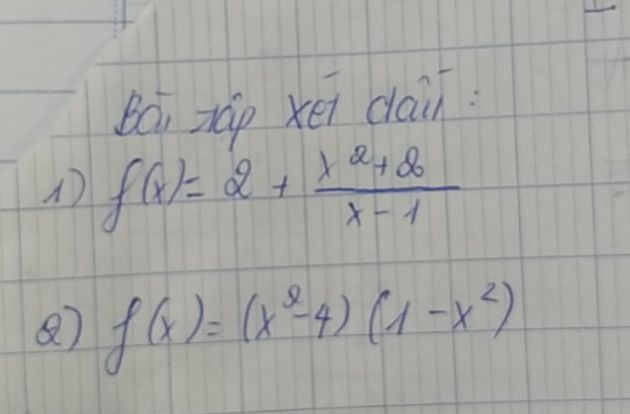 Bài tập xét dấu:
1) f(x) = 2 + \frac{x^2+2}{x-1}
2) f(x) = (x^2-4)(1-x^2)